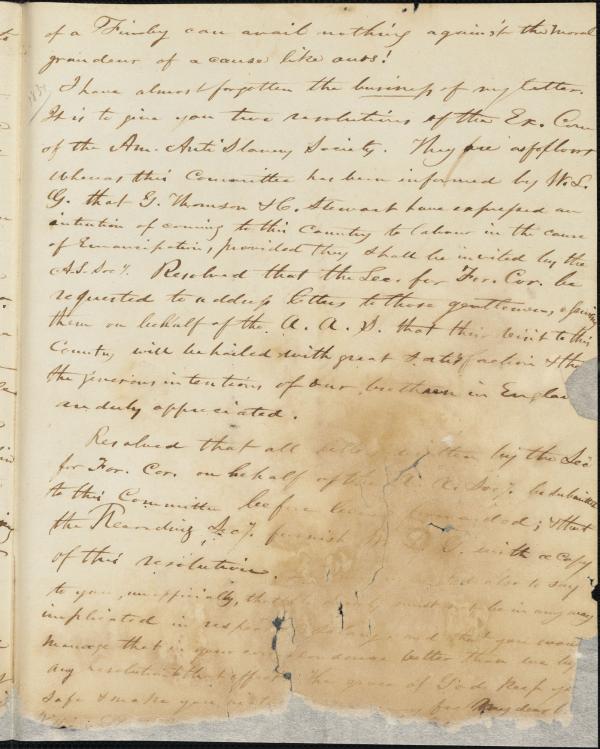 of a Finley can avail nothing against the moral
grandeur of a cause like ours!
I have almost forgotten the business of my letter.
It is to give you two resolutions of the Ex. Com
of the Am. Anti Slavery Society. They are as follows
Whereas this Committee has been informed by W. L.
G. that G. Thomson & C. Stewart have expressed an
intention of coming to this Country to labour in the cause
of Emancipation, provided they shall be invited by the
A.S. Socy. Resolved that the Sec. for For. Cor. be
requested to address letters to those gentlemen, assuring
them on behalf of the A. A. S. that their visit to this
Country will be hailed with great satisfaction & tha
the generous intentions of our brethren in Engla
are duly appreciated.
Resolved that all letters written by the Sec
for For. Cor. on behalf of the A. A. Socy. be submitted
to this Committee before being forwarded; & that
the Recording Secy. furnish with a copy
of this resolution.
also to say
to you, unofficially, that must not be in any way
implicated in and that you can
manage that in your correspondence better than we by
any resolution to that effect. The grace of God keep yo
safe & make you my dear b
1834